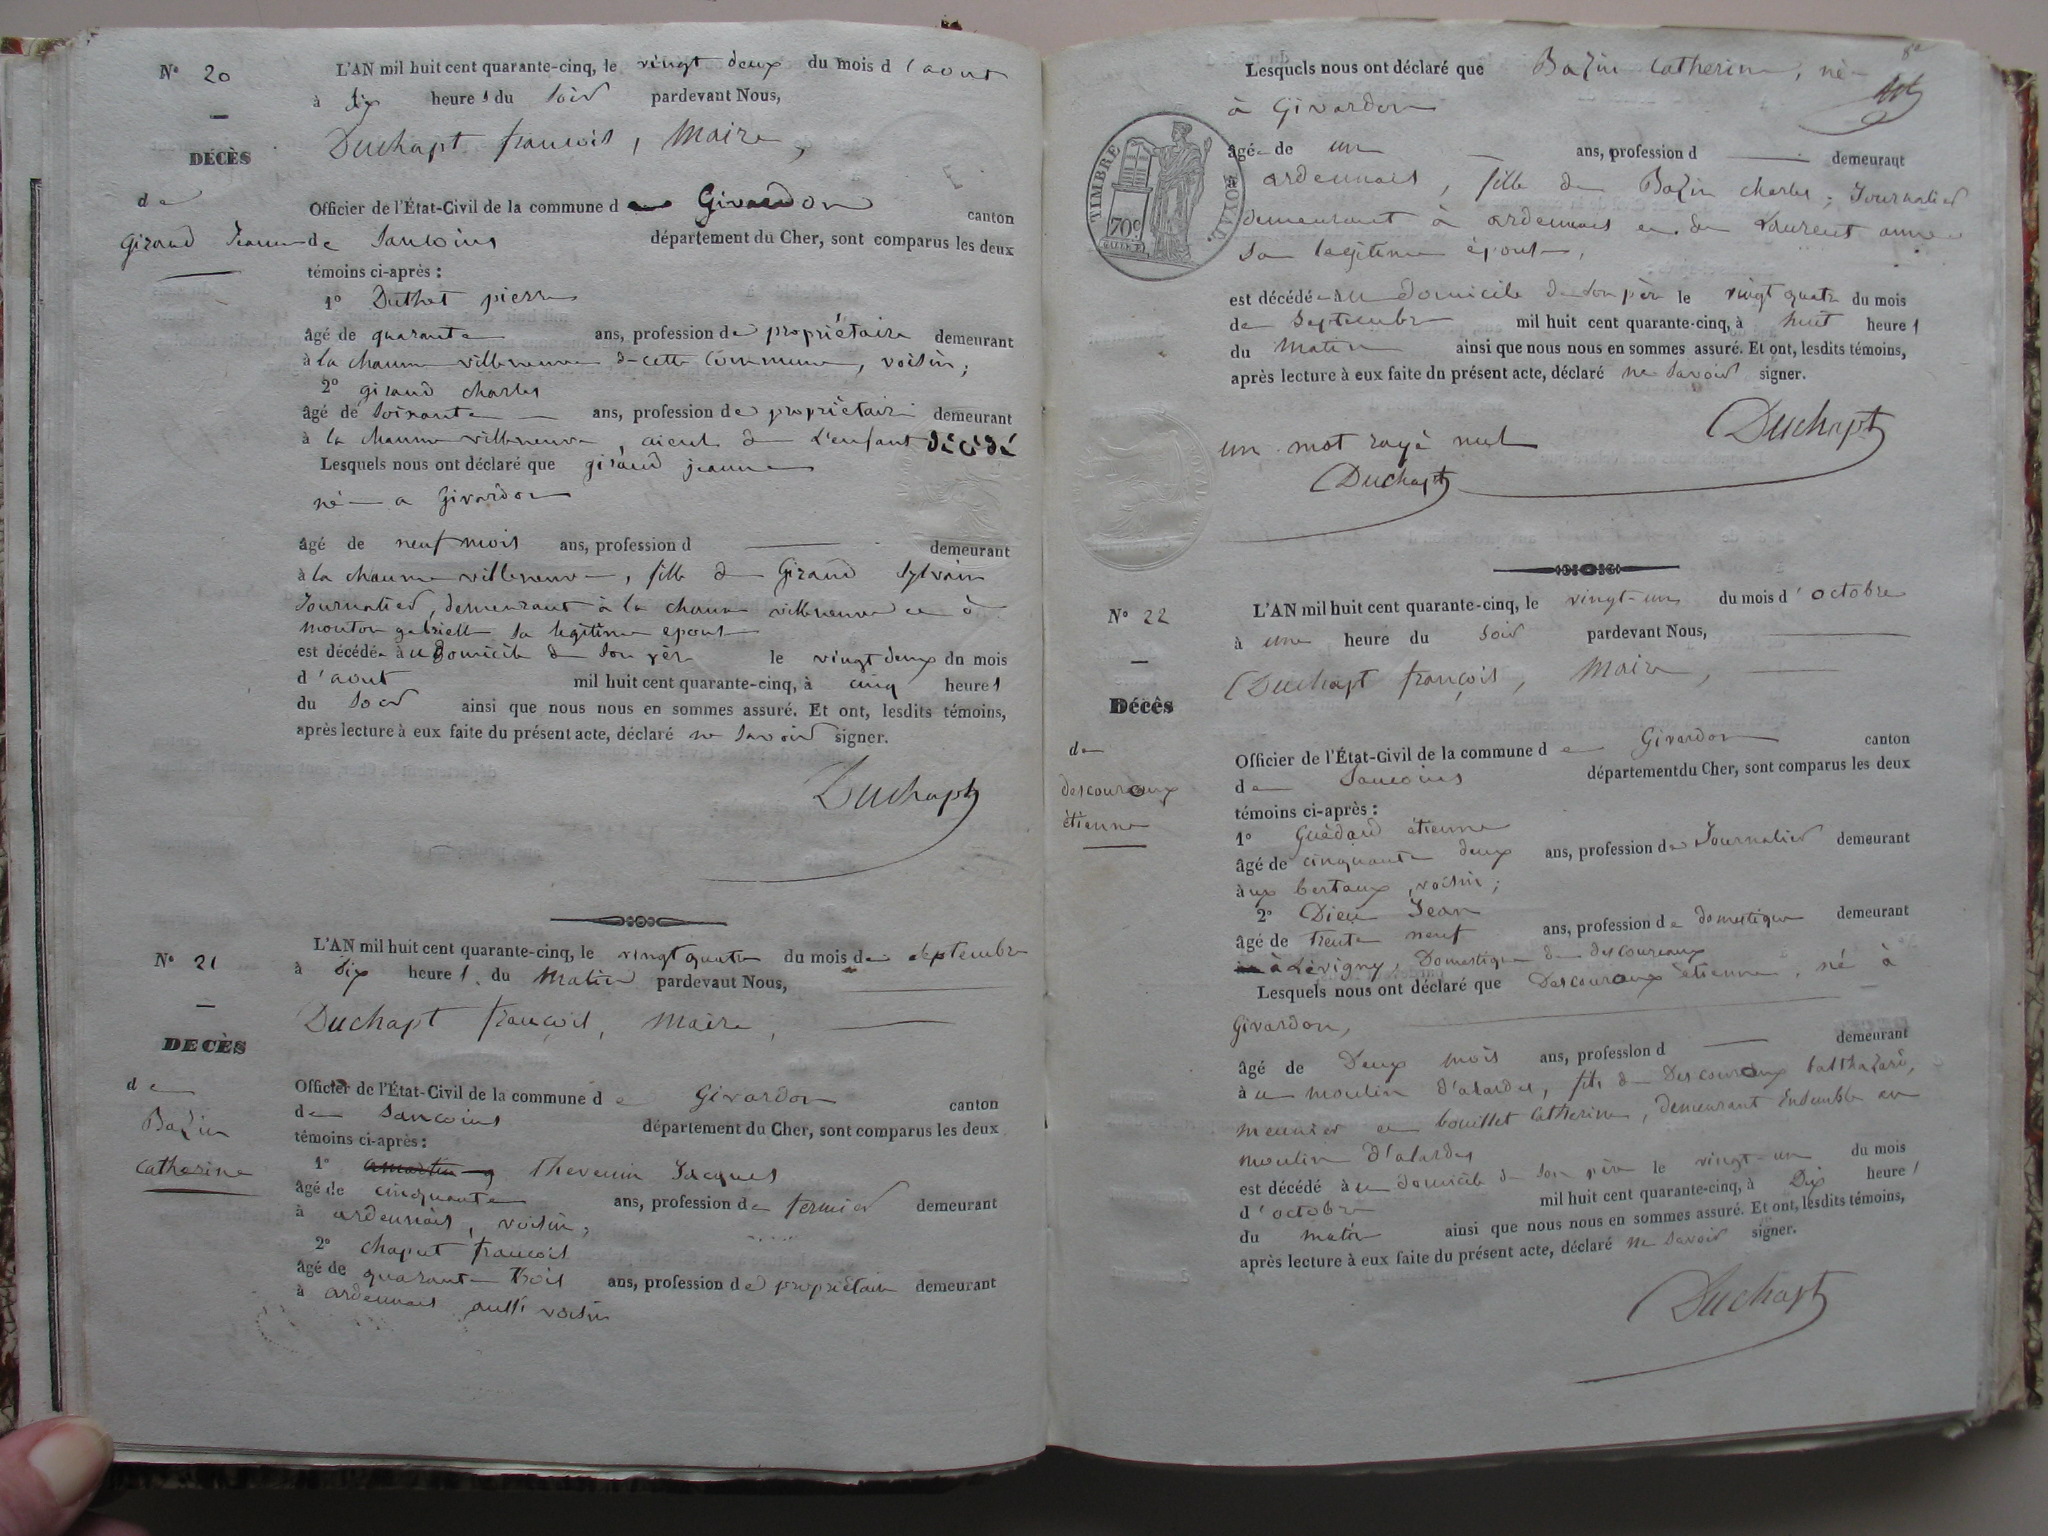 N° 20
L'AN mil huit cent quarante-cinq, le vingt deux du mois d'aout
à six heures du Soir pardevant Nous,
Duchapt françois, Maire,
DÉCÈS
de
Giraud Jeanne
Officier de l'État-Civil de la commune de Givardon canton
de Sancoins département du Cher, sont comparus les deux
témoins ci-après :
1° Duthet pierre
âgé de quarante ans, profession de propriétaire demeurant
à la chaume villeneuve de cette Commune, voisin ;
2° giraud charles
âgé de Soixante ans, profession de propriétaire demeurant
à la chaume villeneuve, aieul de L'enfant décédé
Lesquels nous ont déclaré que giraud jeanne
née a Givardon
âgé de neuf mois ans, profession d demeurant
à la chaume villeneuve, fille de Giraud Sylvain
Journalier, demeurant à la chaume villeneuve et à
Mouton gabrielle Sa legitime epouse
est décédée au domicile de Son père le vingt deux du mois
d'aout mil huit cent quarante-cinq, à cinq heures
du Soir ainsi que nous nous en sommes assuré. Et ont, lesdits témoins,
après lecture à eux faite du présent acte, déclaré ne Savoir signer.
Duchapt
N° 21
L'AN mil huit cent quarante-cinq, le vingt quatre du mois de Septembre
à dix heures du Matin pardevant Nous,
Duchapt françois, Maire,
DECÈS
de
Bazin
Catherine
Officier de l'État-Civil de la commune de Givardon canton
de Sancoins département du Cher, sont comparus les deux
témoins ci-après :
1° Thevenin Jacques
âgé de cinquante ans, profession de fermier demeurant
à ardennais, voisin ;
2° chaput françois
âgé de quarante trois ans, profession de propriétaire demeurant
à ardennais aussi voisin
Lesquels nous ont déclaré que Bazin Catherine, née
à Givardon
TIMBRE ROYAL
70c
âgée de un ans, profession d demeurant
ardennais, fille de Bazin charles, Journalier
demeurant à ardennais et de Laurent anne
Sa legitime épouse,
est décédée au domicile de Son père le vingt quatre du mois
de Septembre mil huit cent quarante-cinq, à huit heures
du Matin ainsi que nous nous en sommes assuré. Et ont, lesdits témoins,
après lecture à eux faite du présent acte, déclaré ne Savoir signer.
Duchapt
un mot rayé nul
Duchapt
N° 22
L'AN mil huit cent quarante-cinq, le vingt-un du mois d'octobre
à une heure du Soir pardevant Nous,
Duchapt françois, Maire,
Décès
de
descouraux
étienne
Officier de l'État-Civil de la commune de Givardon canton
de Sancoins département du Cher, sont comparus les deux
témoins ci-après :
1° Guédard étienne
âgé de cinquante deux ans, profession de Journalier demeurant
aux bertaux, voisin ;
2° Dieu Jean
âgé de trente neuf ans, profession de domestique demeurant
à Lévigny, Domestique de descouraux
Lesquels nous ont déclaré que Descouraux étienne, né à
Givardon,
âgé de Deux mois ans, profession d demeurant
au moulin d'alardes, fils de Descouraux balthazard,
meunier et bouillet Catherine, demeurant Ensemble au
moulin d'alardes
est décédé au domicile de Son père le vingt-un du mois
d'octobre mil huit cent quarante-cinq, à Dix heures
du matin ainsi que nous nous en sommes assuré. Et ont, lesdits témoins,
après lecture à eux faite du présent acte, déclaré ne Savoir signer.
Duchapt